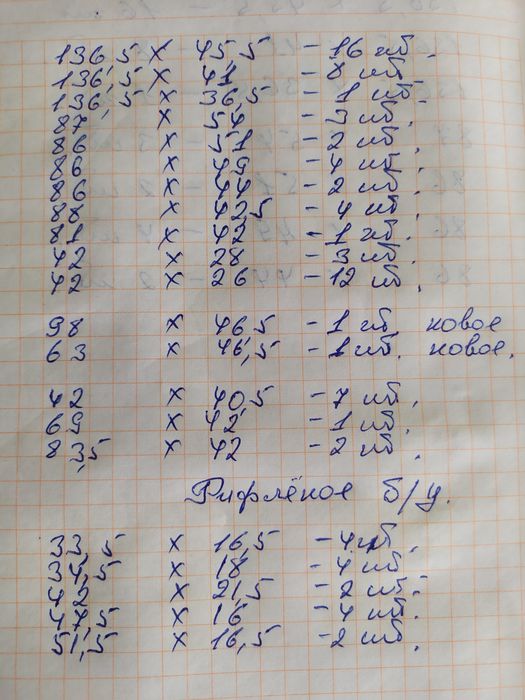 136,5 х 45,5 - 16 шт.
136,5 х 41 - 8 шт.
136,5 х 36,5 - 1 шт.
87 х 54 - 3 шт.
86 х 51 - 2 шт.
86 х 49 - 4 шт.
86 х 44 - 2 шт.
88 х 42,5 - 4 шт.
81 х 42 - 1 шт.
42 х 28 - 3 шт.
42 х 26 - 12 шт.
98 х 46,5 - 1 шт. новое
63 х 46,5 - 1 шт. новое.
42 х 40,5 - 7 шт.
69 х 42 - 1 шт.
83,5 х 42 - 2 шт.
Рифлёное б/у.
33,5 х 16,5 - 4 шт.
34,5 х 18 - 4 шт.
42 х 21,5 - 2 шт.
47,5 х 16 - 4 шт.
51,5 х 16,5 - 2 шт.